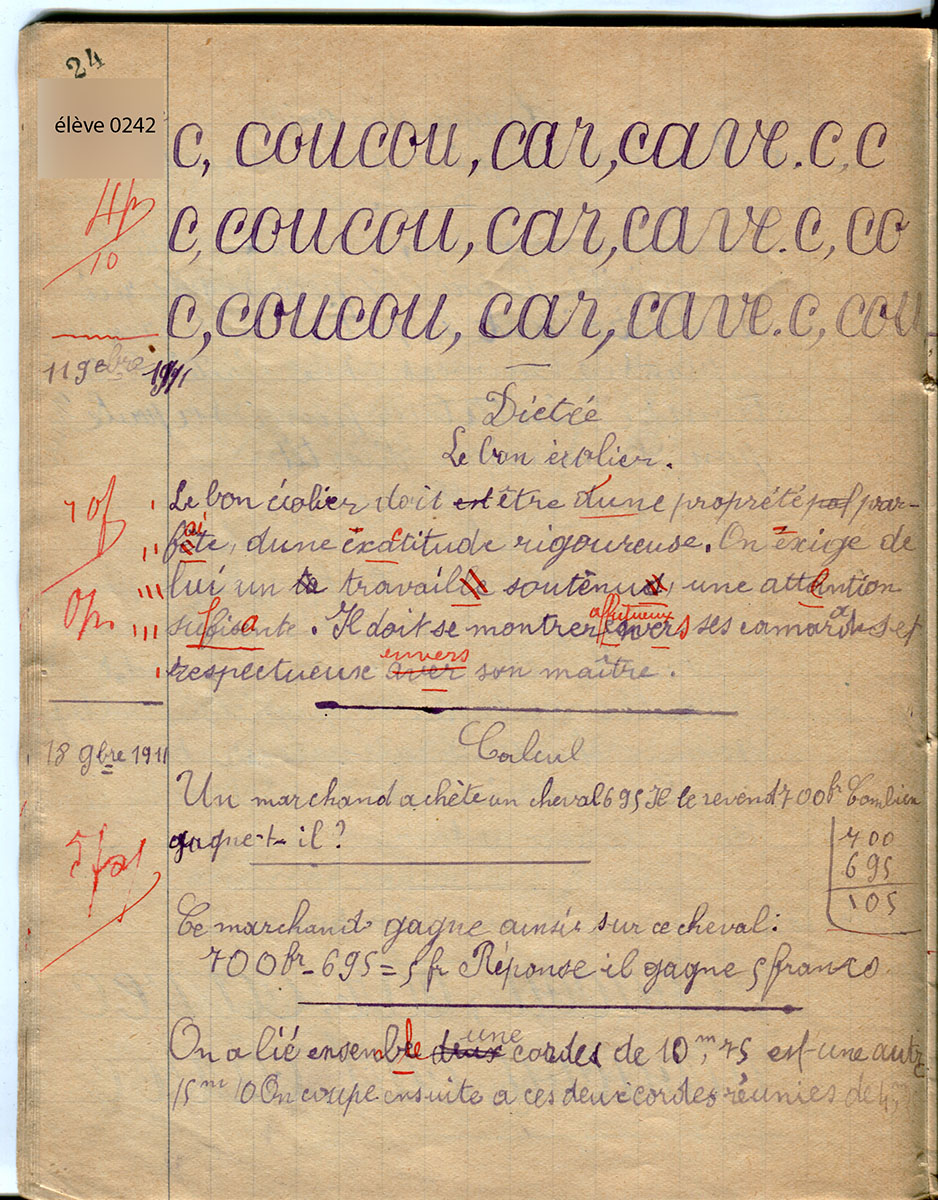 24
élève 0242
c, coucou, car, cave. c, c
4p
10
c, coucou, car, cave. c, co
c, coucou, car, cave. c, cou
11 9bre 1911
Dictée
Le bon écolier.
Le bon écolier doit est être dune propréte par-
10f
faite, dune exactitude rigoureuse. On exige de
lui un te travail soutenu, une attention
0p.
suffisante. Il doit se montrer affectueux envers ses camarades et
envers
respectueuse aver son maître.
Calcul
18 9bre 1911
Un marchand achète un cheval 695 Il le revend 700fr Combien
gagne-t-il ?
700
695
105
5fa1
Ce marchand gagne ainsi sur ce cheval:
700fr - 695 = 5 fr Réponse il gagne 5 francs
une
On a lié ensemble deux cordes de 10m,75 est-une autre
15m 10 On coupe ensuite a ces deux cordes réunies de 4,